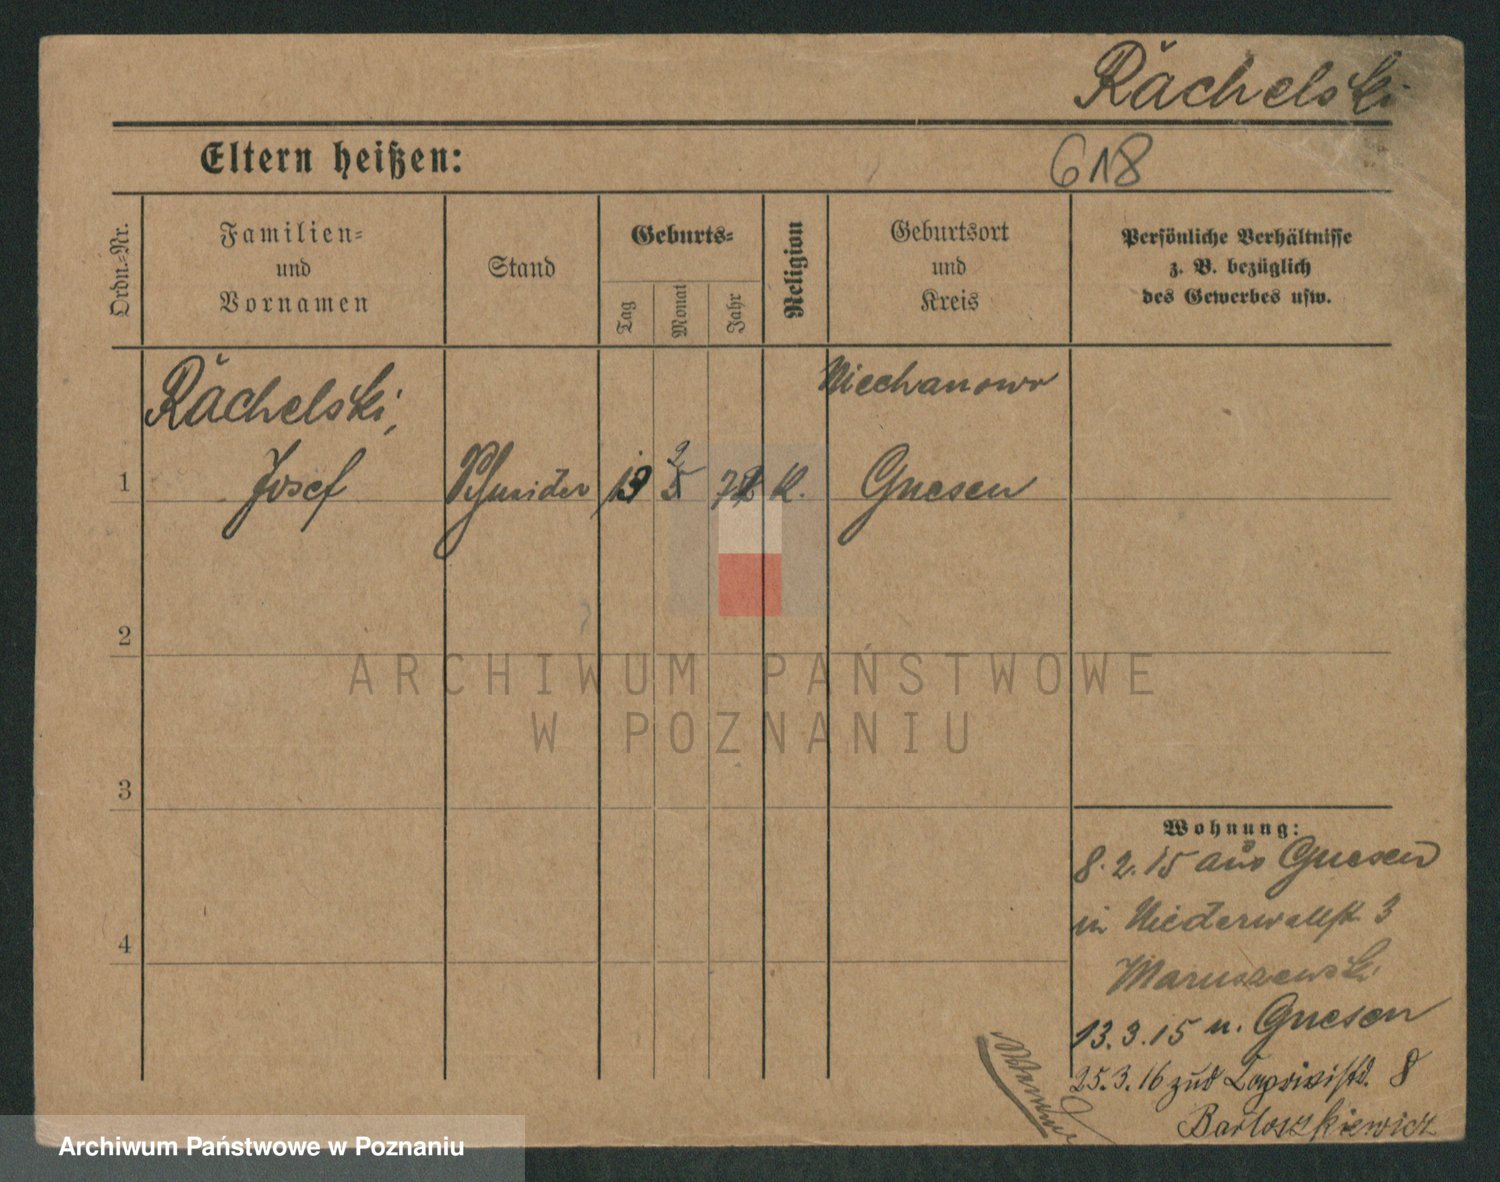 Råchelski
Eltern heißen:
618
Ordn.-Nr.
Familien-
und
Vornamen
Stand
Geburts-
Tag
Monat
Jahr
Religion
Geburtsort
und
Kreis
Persönliche Verhältnisse
z. B. bezüglich
des Gewerbes usw.
Råchelski,
Niechanowo
1 Josef Schneider K. Gnesen
2
3
4
ARCHIWUM PAŃSTWOWE
W POZNANIU
Wohnung:
8.2.15 aus Gnesen
in Niederwallst. 3
Maruszewski
13.3.15 n. Gnesen
25.3.16 zud 8
Bartoszkiewicz
Archiwum Państwowe w Poznaniu